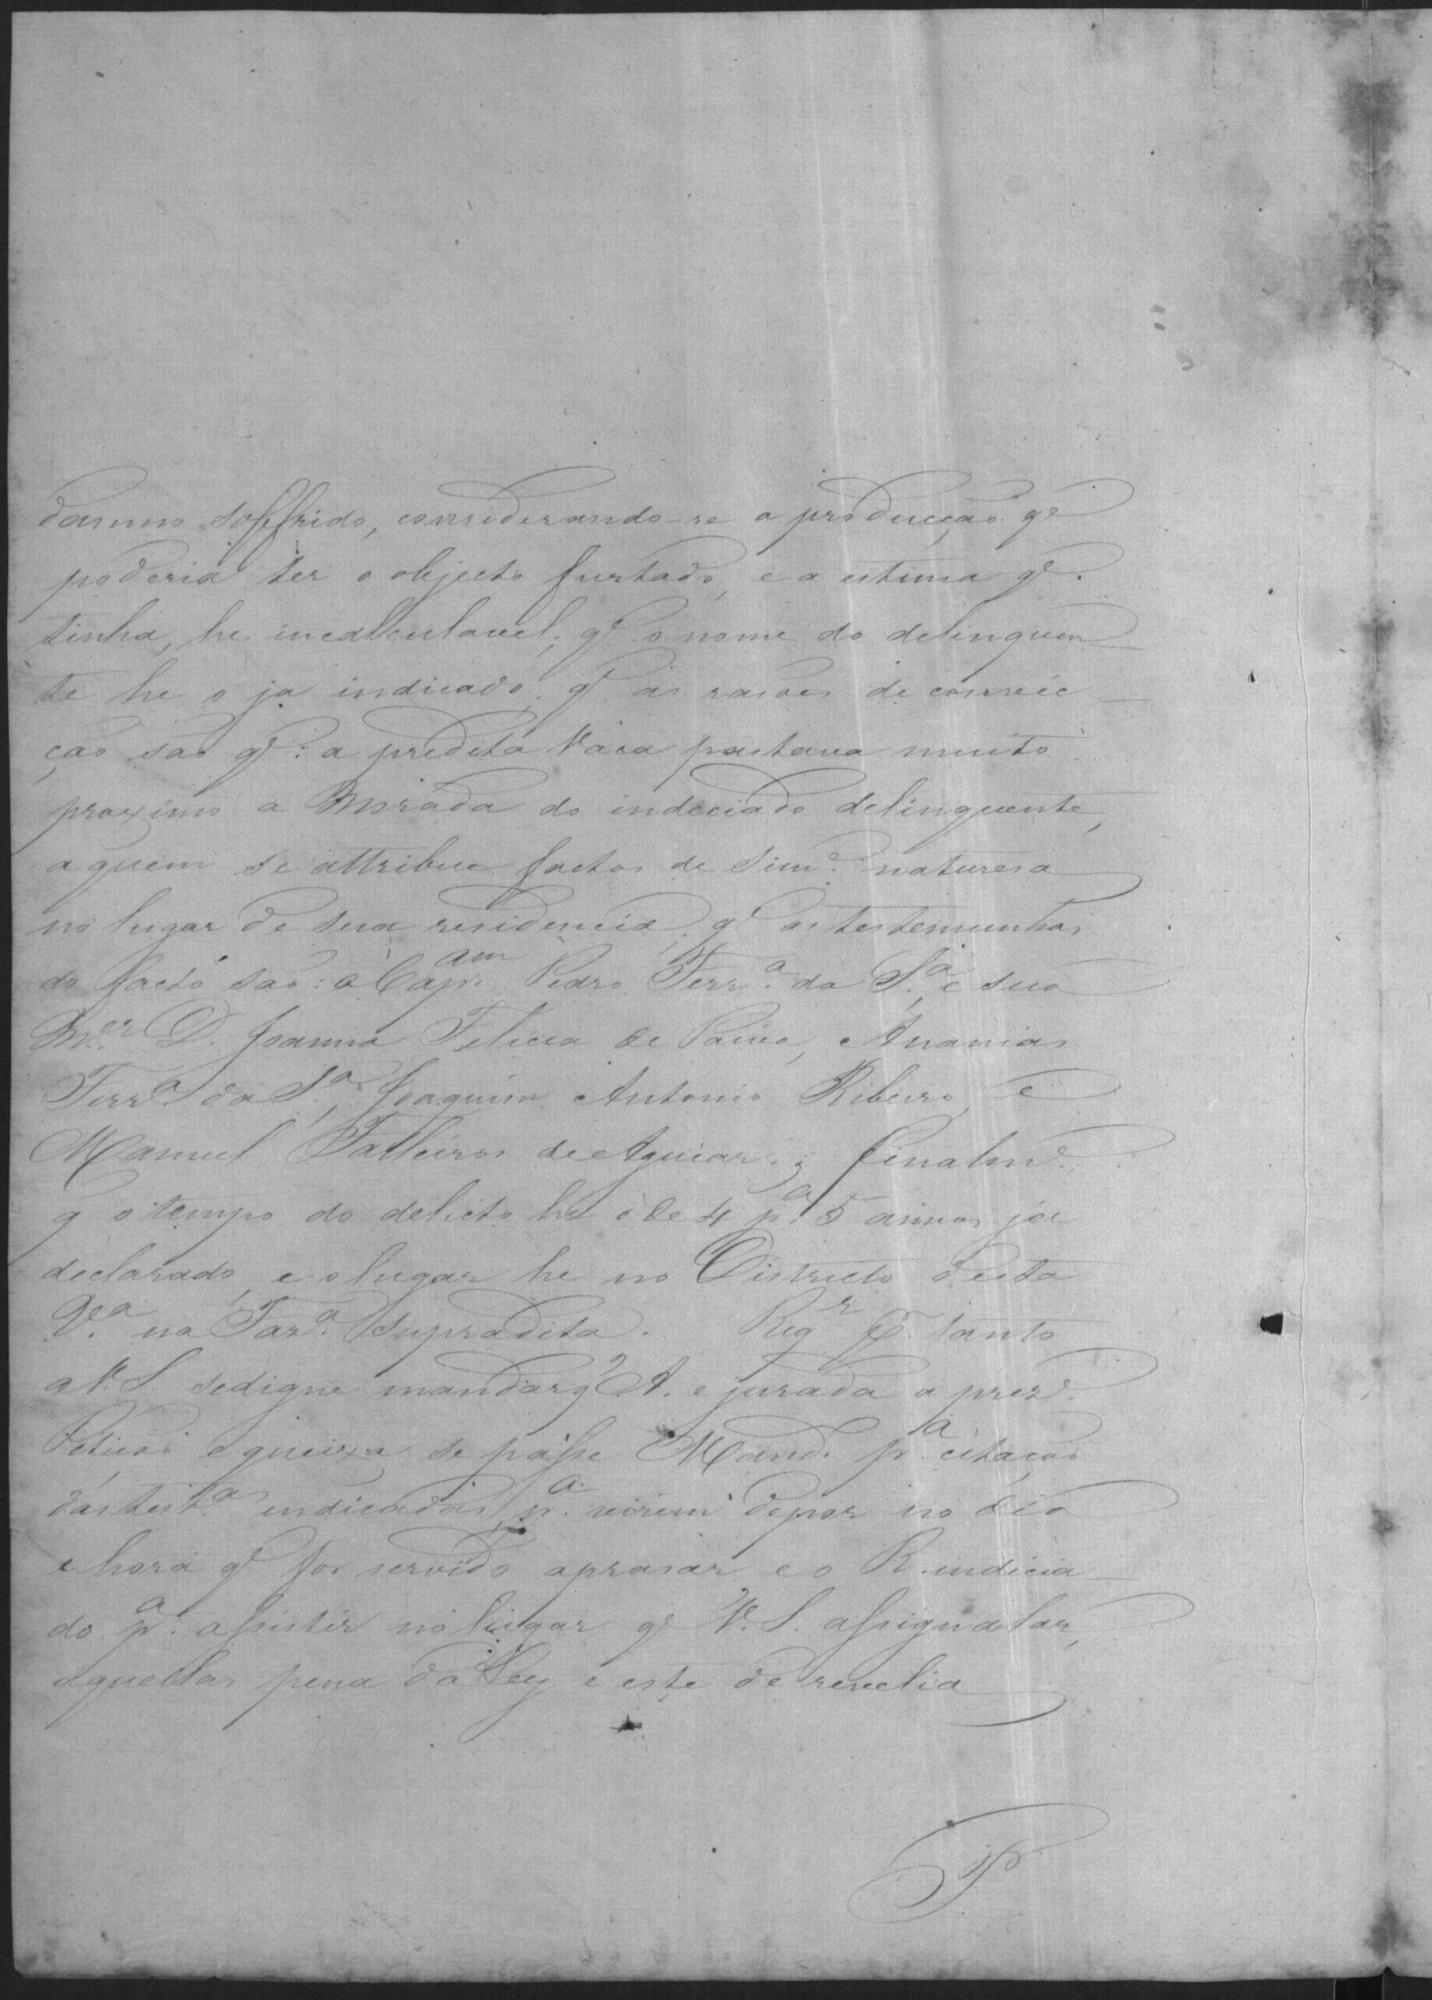 damno soffrido, considerando-se a producção qᵉ
poderia ter o objecto furtado, e a estima qᵉ.
tinha, he incalculavel; qᵉ o nome do delinquen
te he o ja indicado; qᵉ as rasoes de convic
ção são qᵉ: a predita Vaca pastava muito
proximo a Morada do indeciado delinquente,
a quem se attribue factos de simᵉ. naturesa
no lugar de sua residencia; qᵉ as testemunhas
do facto são: o Capᵃᵐ. Pedro Ferrᵃ. da Sᵃ., e sua
Mᵉʳ. D. Joanna Felicia de Paiva, Ananias
Ferrᵃ. da Sᵃ., Joaquim Antonio Ribeiro, e
Manuel Talleiros de Aguiar; finalmᵉ.
q o tempo do delicto he o de 4 pᵃ. 5 annos ja
declarado, e o lugar he no Districto desta
Vᵃ. na Fazᵃ. supradita. Reqʳ P. tanto
a V. S. se digne mandar qᵉ A. e jurada a prezᵉ.
Peticão e queixa se passe Mand. pᵃ. citacão
das testᵃˢ indicadas, pᵃ. virem depor no dia
e hora qᵉ for servido aprasar e o R. indicia
do pᵃ. assistir no lugar qᵉ V. S. assignalar,
aquellas pena da Ley e este de revelia
P.